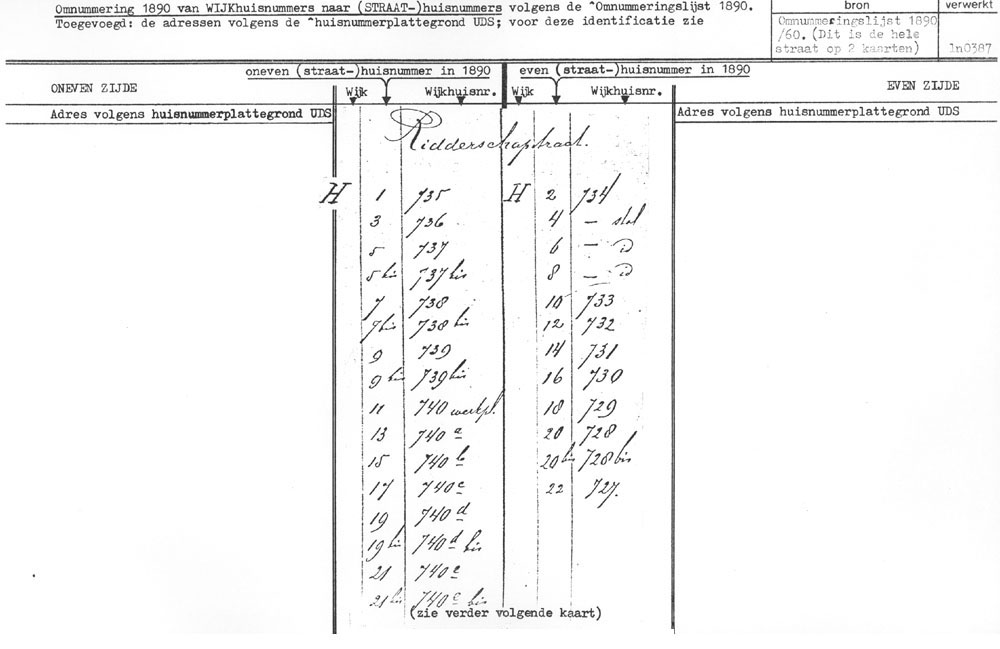 Omnummering 1890 van WIJKhuisnummers naar (STRAAT-)huisnummers volgens de ^Omnummeringslijst 1890.
Toegevoegd: de adressen volgens de ^huisnummerplattegrond UDS; voor deze identificatie zie
bron
verwerkt
Omnummeringslijst 1890
/60. (Dit is de hele
straat op 2 kaarten)
1n0387
ONEVEN ZIJDE
oneven (straat-)huisnummer in 1890
even (straat-)huisnummer in 1890
EVEN ZIJDE
Wijk Wijkhuisnr. Wijk Wijkhuisnr.
Adres volgens huisnummerplattegrond UDS
Adres volgens huisnummerplattegrond UDS
Ridderschapstraat.
H 1 735 H 2 734
3 736 4 — stal
5 737 6 — D
5 bis 737 bis 8 — D
7 738 10 733
7 bis 738 bis 12 732
9 739 14 731
9 bis 739 bis 16 730
11 740 werkpl. 18 729
13 740 a 20 728
15 740 b 20 bis 728 bis
17 740 c 22 727.
19 740 d
19 bis 740 d bis
21 740 e
21 bis 740 e bis
(zie verder volgende kaart)